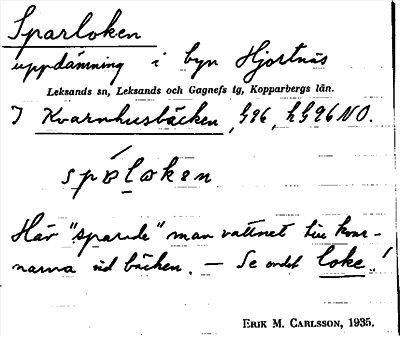 Sparloken
uppdämning i byn Hjortnäs
Leksands sn, Leksands och Gagnefs tg, Kopparbergs län.
I Kvarnhusbäcken, G96, hG96NO.
spɷloken
Här "sparade" man vattnet till kvar-
narna vid bäcken. – Se ordet loke!
ERIK M. CARLSSON, 1935.